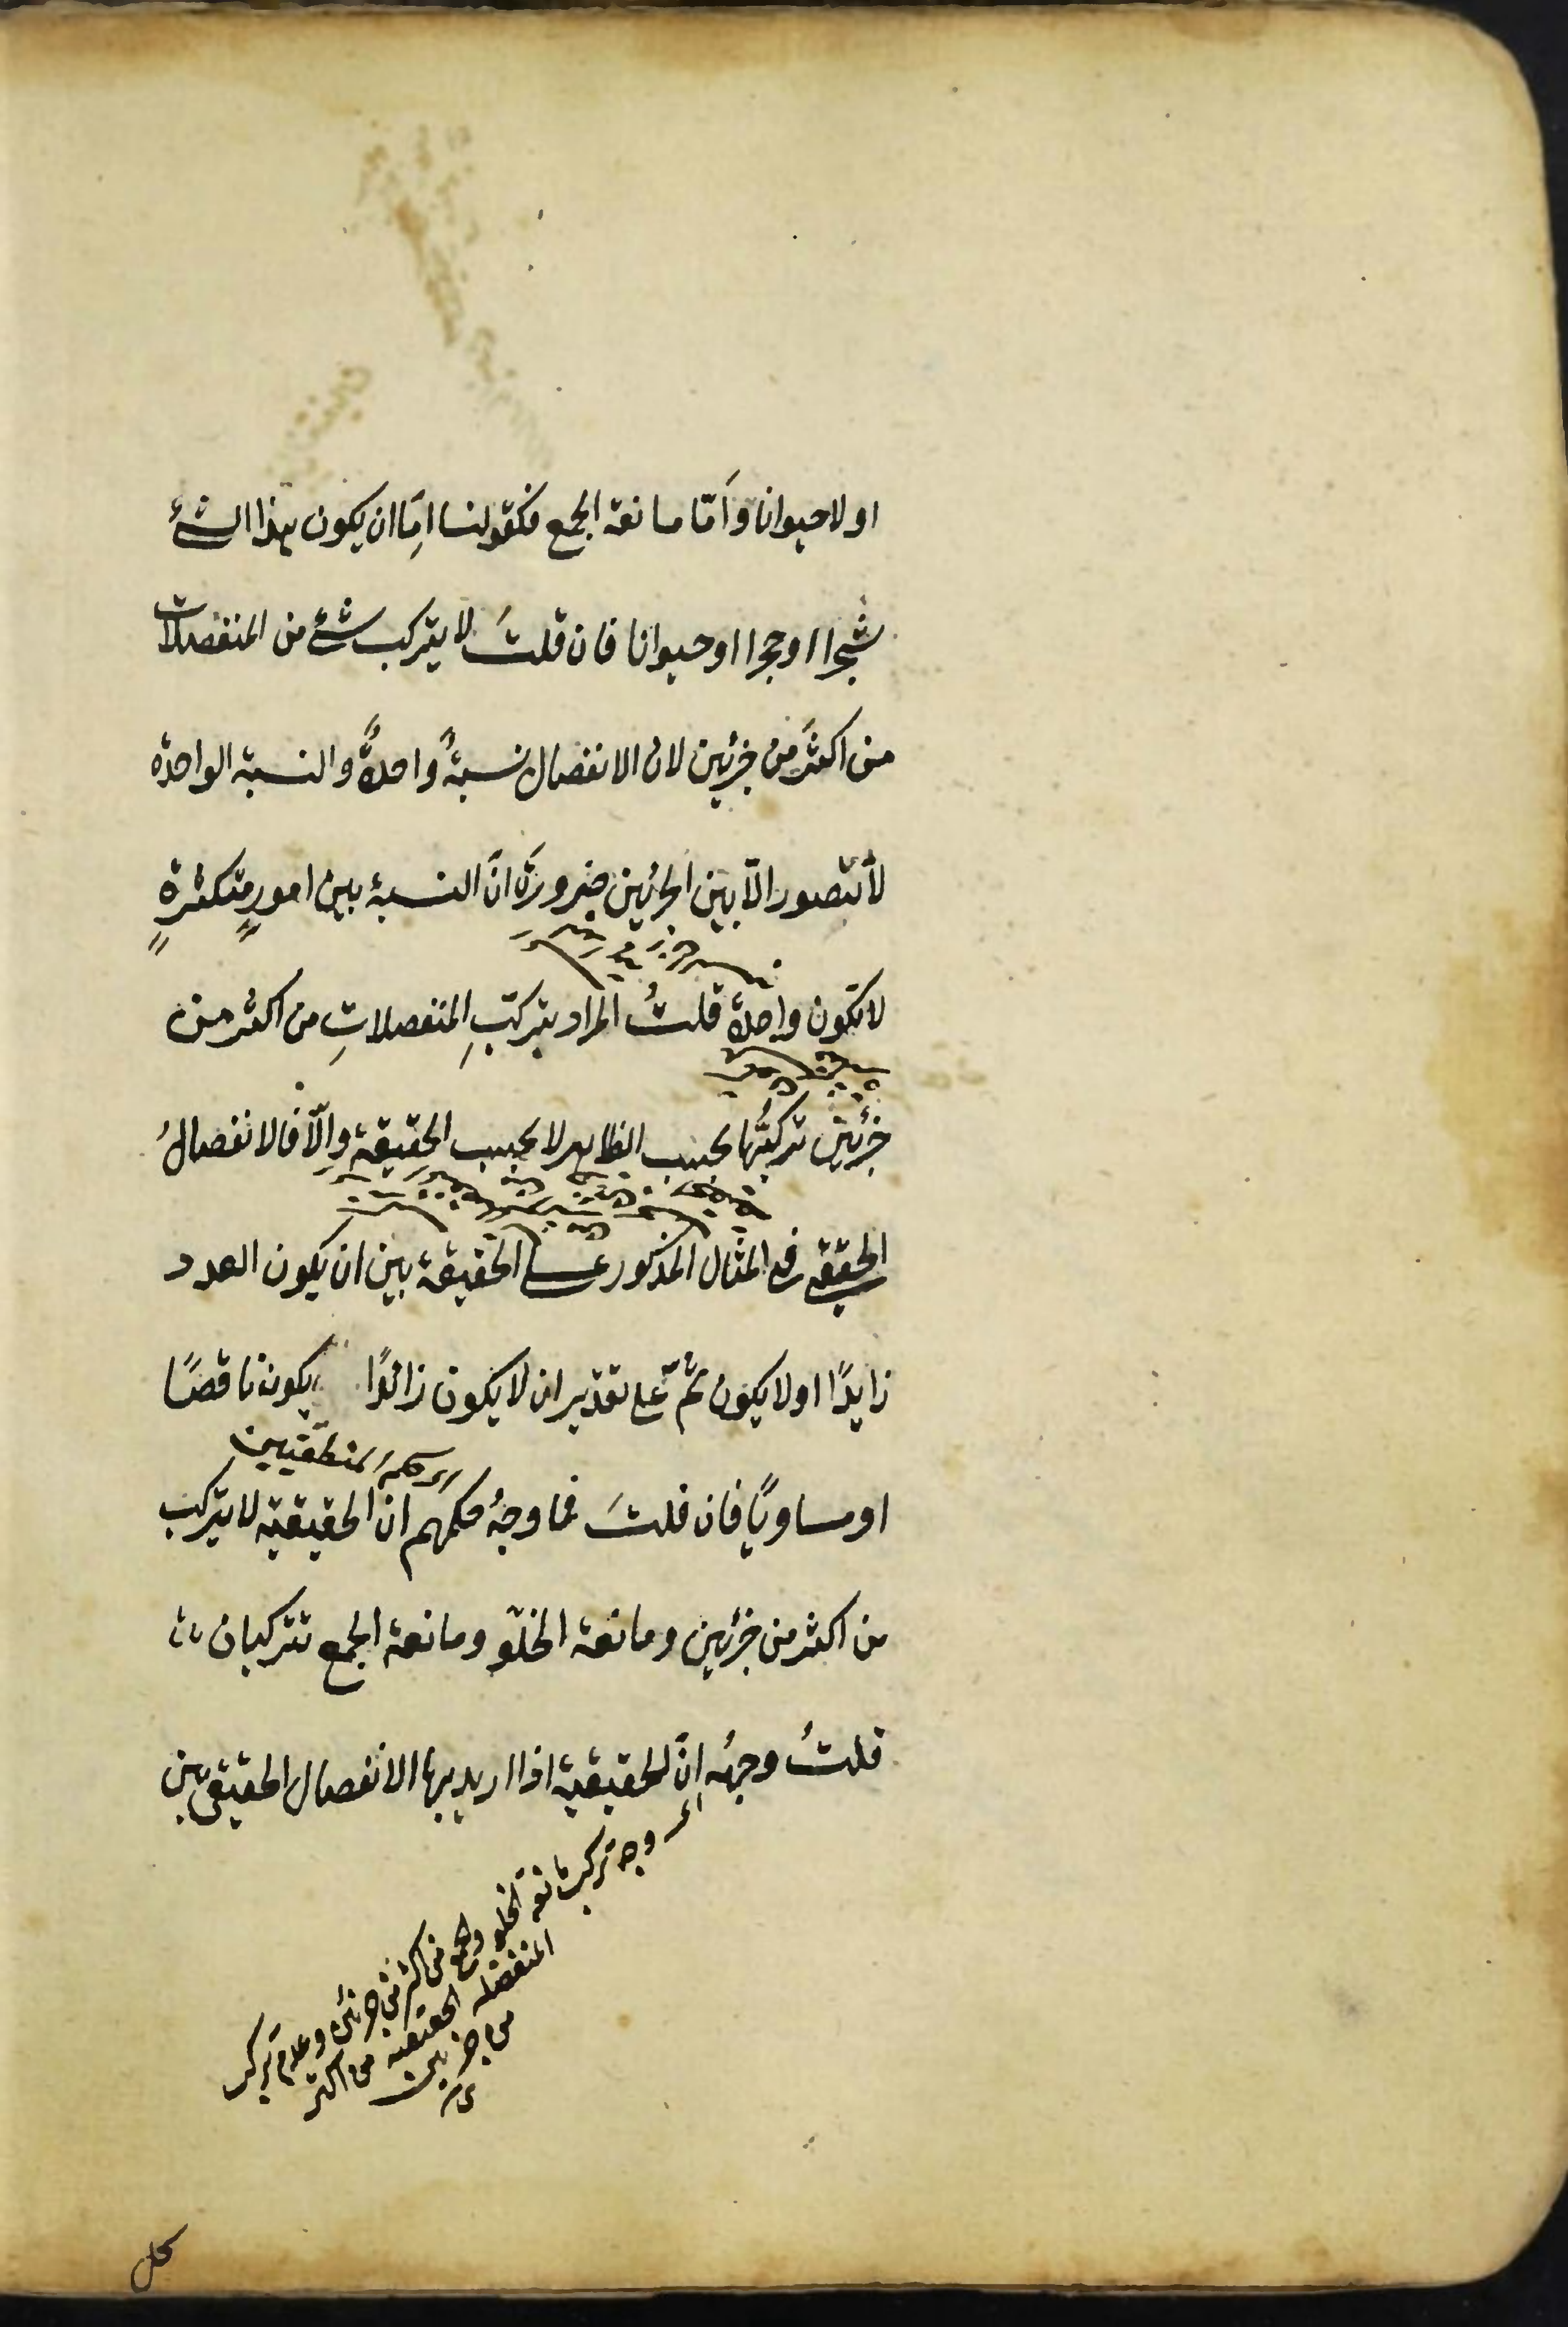 او لاحيوانا وَاَمّا مانعة الجمع فكقولنا اِمَّا ان يكون هذا الشئ
شجرا او حجرا او حيوانا فان قلتَ لا يتركب شئ من المنفصلات
من اكثرَ من جزئين لان الانفصال نسبةٌ واحدةٌ والنسبة الواحدة
لا تتصور الّا بين الجزئين ضرورةَ انّ النسبة بين امورٍ متكثرةٍ
لا تكون واحدة قلتُ المراد بتركّبِ المنفصلاتِ من اكثر من
جزئين تركبُها بحسب الظاهر لا بحسب الحقيقة واِلّا فالانفصالُ
الحقيقى فى المثال المذكور على الحقيقة بين ان يكون العدد
زايدًا او لا يكون ثمّ على تقدير ان لا يكون زائدًا يكون ناقصًا
اى حكم المنطقيين
او مساويًا فان قلتَ فما وجهُ حكمهم ان الحقيقية لا يتركب
من اكثر من جزئين ومانعة الخلوّ ومانعة الجمع تتركبان
قلتُ وجهُه اِنّ الحقيقية اذا اريد بها الانفصال الحقيقى بين
اى وجه تركب مانعة الخلو والجمع من اكثر من جزئين وعدم تركب
المنفصله الحقيقيه من اكثر
من جزئين
كل